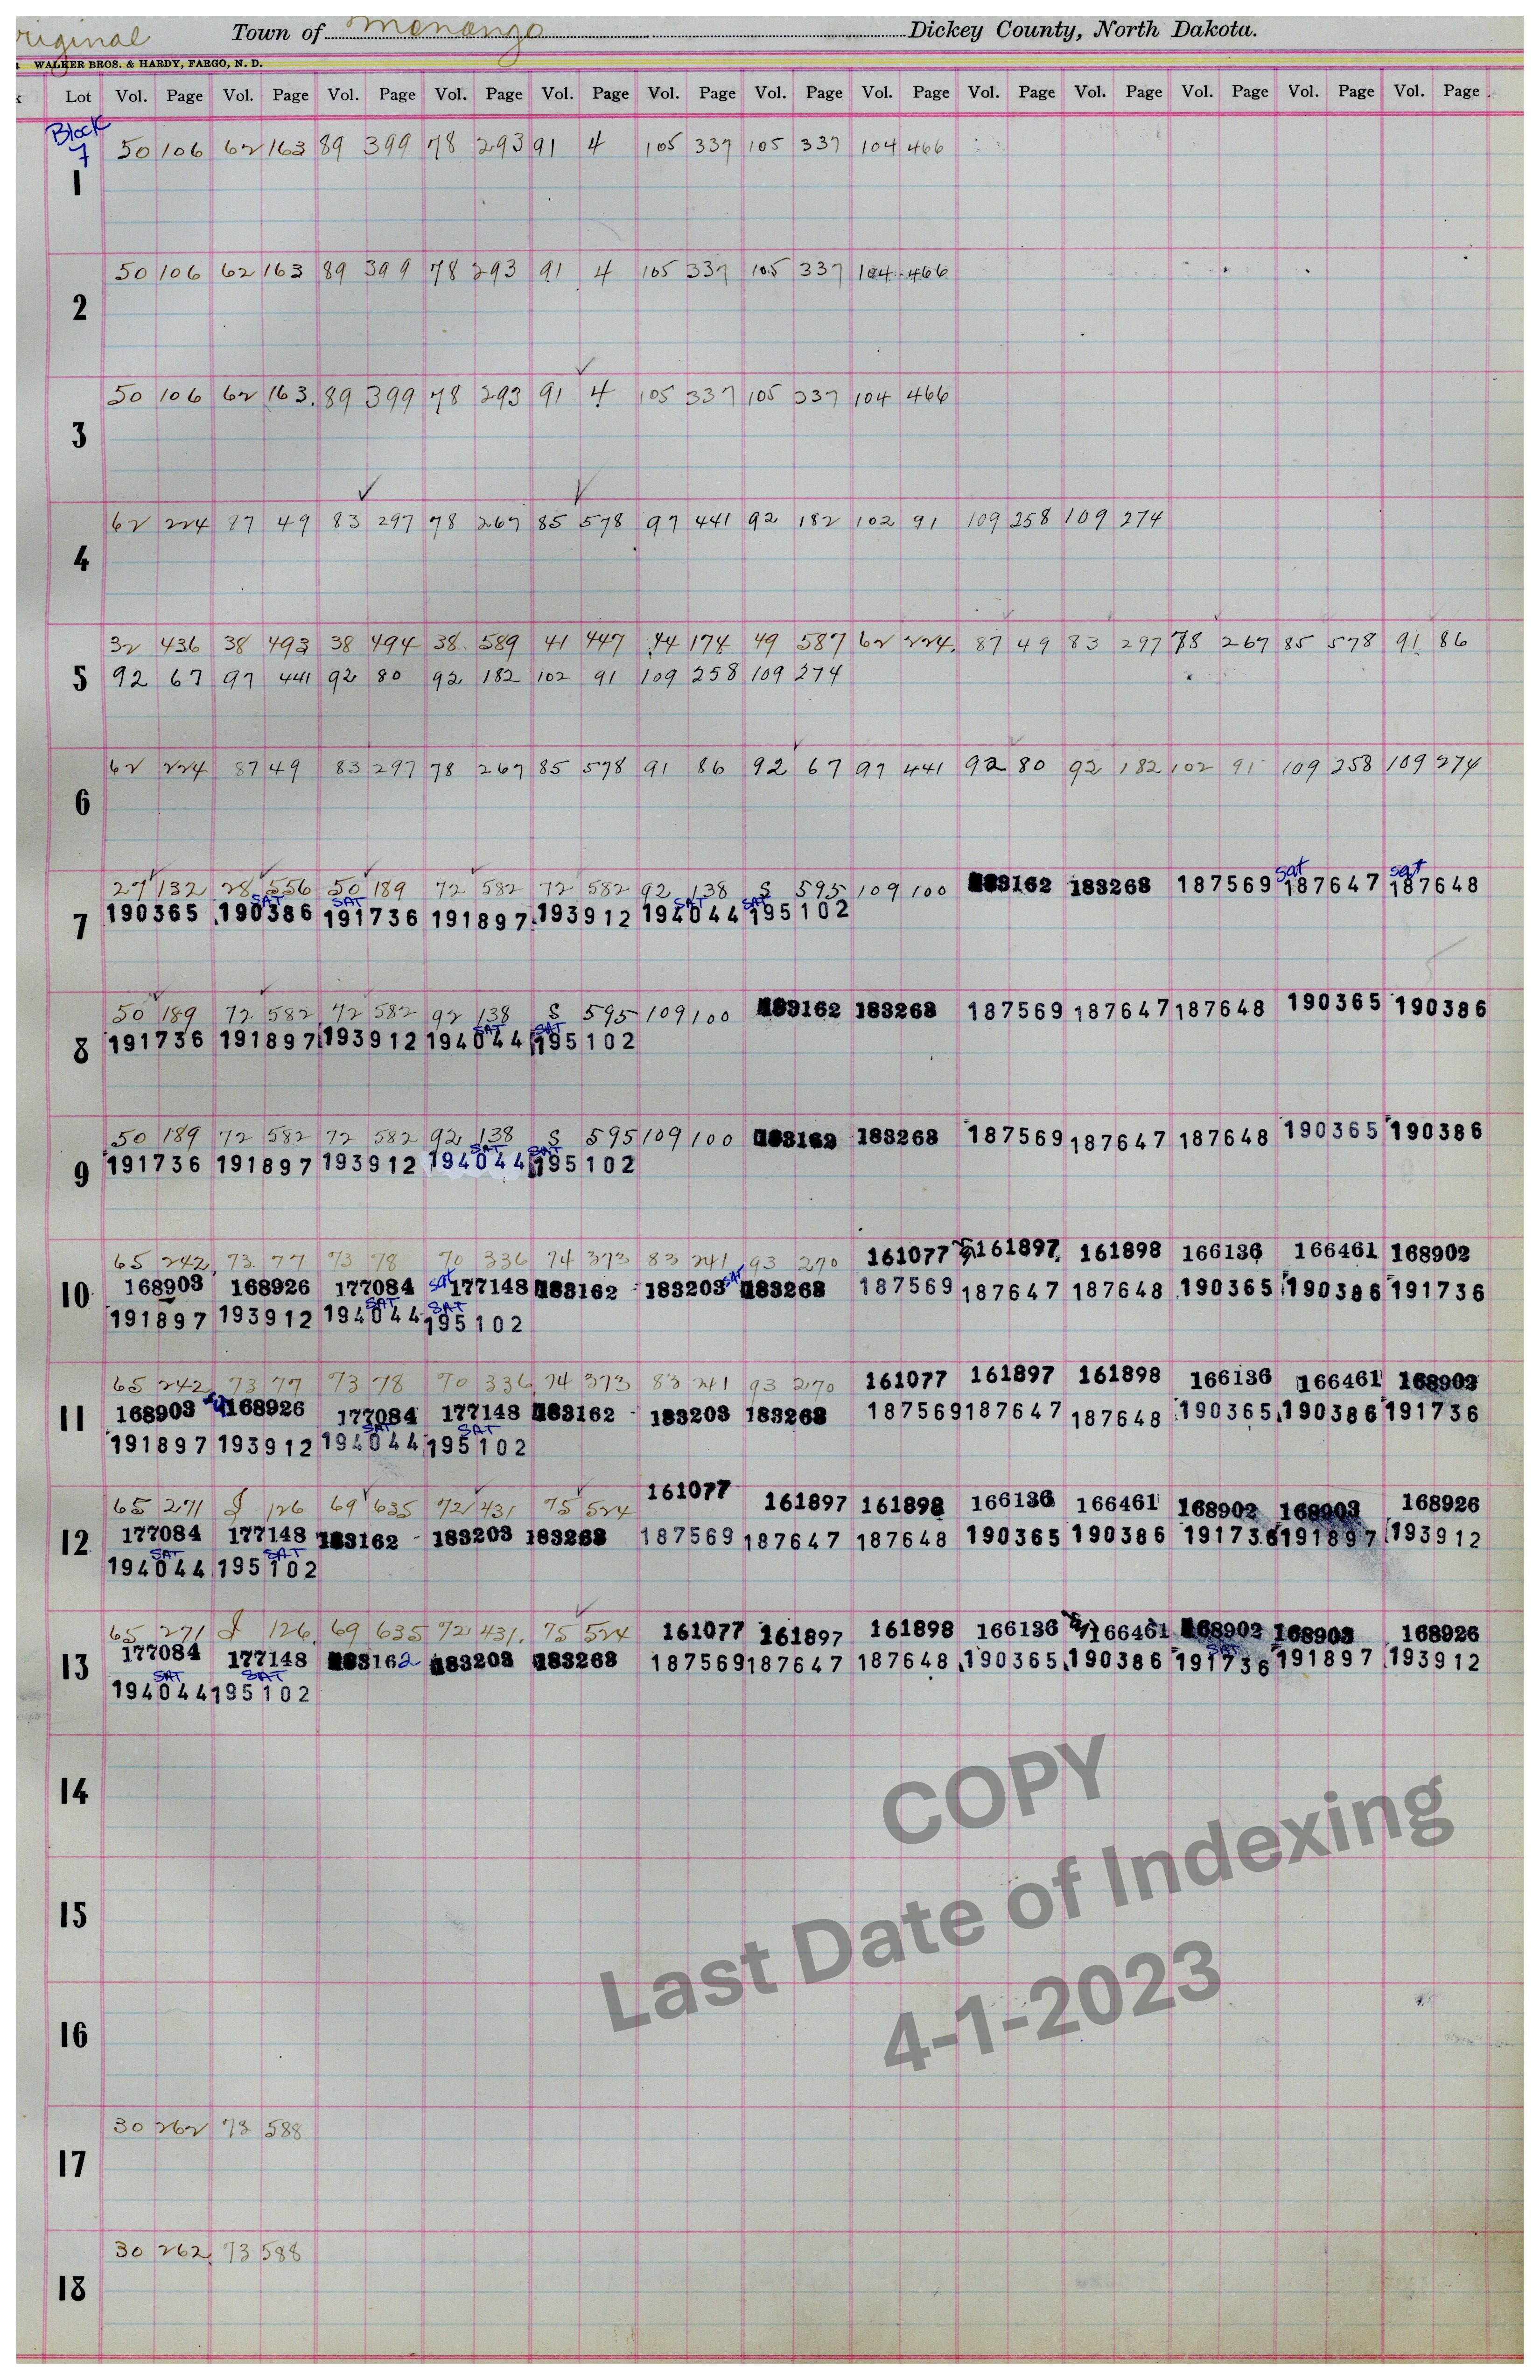 riginal Town of Monango Dickey County, North Dakota.
WALKER BROS. & HARDY, FARGO, N. D.
Lot Vol. Page Vol. Page Vol. Page Vol. Page Vol. Page Vol. Page Vol. Page Vol. Page Vol. Page Vol. Page Vol. Page Vol. Page Vol. Page
Block
7 50 106 62 163 89 399 78 293 91 4 105 337 105 337 104 466
1
50 106 62 163 89 399 78 293 91 4 105 337 105 337 104 466
2
50 106 62 163 89 399 78 293 91 4 105 337 105 337 104 466
3
62 224 87 49 83 297 78 267 85 578 97 441 92 182 102 91 109 258 109 274
4
32 436 38 493 38 494 38 589 41 447 44 174 49 587 62 224 87 49 83 297 78 267 85 578 91 86
5 92 67 97 441 92 80 92 182 102 91 109 258 109 274
62 224 87 49 83 297 78 267 85 578 91 86 92 67 97 441 92 80 92 182 102 91 109 258 109 274
6
sat sat
27 132 28 556 50 189 72 582 72 582 92 138 S 595 109 100 183162 183268 187569 187647 187648
SAT SAT SAT SAT
7 190365 190386 191736 191897 193912 194044 195102
50 189 72 582 72 582 92 138 S 595 109 100 183162 183268 187569 187647 187648 190365 190386
SAT SAT
8 191736 191897 193912 194044 195102
50 189 72 582 72 582 92 138 S 595 109 100 183162 183268 187569 187647 187648 190365 190386
SAT SAT
9 191736 191897 193912 194044 195102
65 242 73 77 73 78 70 336 74 373 83 241 93 270 161077 161897 161898 166136 166461 168902
10 168903 168926 177084 sat 177148 183162 183203 SAT 183268 187569 187647 187648 190365 190386 191736
SAT SAT
191897 193912 194044 195102
65 242 73 77 73 78 70 336 74 373 83 241 93 270 161077 161897 161898 166136 166461 168902
11 168903 168926 177084 177148 183162 183203 183268 187569 187647 187648 190365 190386 191736
SAT SAT
191897 193912 194044 195102
65 271 J 126 69 635 72 431 75 524 161077 161897 161898 166136 166461 168902 168903 168926
12 177084 177148 183162 183203 183268 187569 187647 187648 190365 190386 191736 191897 193912
SAT SAT
194044 195102
65 271 J 126 69 635 72 431 75 524 161077 161897 161898 166136 166461 168902 168903 168926
SAT
13 177084 177148 183162 183203 183268 187569 187647 187648 190365 190386 191736 191897 193912
SAT SAT
194044 195102
14
15
16
30 262 73 588
17
30 262 73 588
18
COPY
Last Date of Indexing
4-1-2023